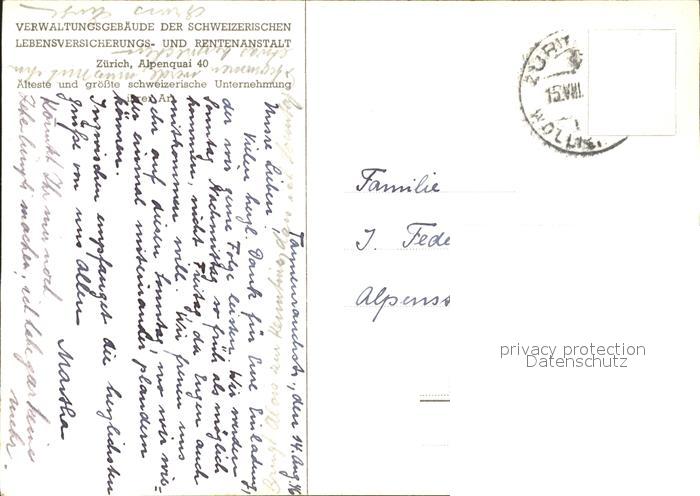 VERWALTUNGSGEBÄUDE DER SCHWEIZERISCHEN
LEBENSVERSICHERUNGS- UND RENTENANSTALT
Zürich, Alpenquai 40
Älteste und größte schweizerische Unternehmung
ihrer Art
den 14. Aug. 46
Meine Lieben,
Vielen herzl. Dank für Eure Einladung,
der wir gerne Folge leisten. Wir werden
Sonntag Nachmittag so früh als möglich
kommen, nicht Freitag, da Eugen auch
mitkommen will. Wir freuen uns
sehr auf diesen Sonntag, wo wir wie-
der einmal miteinander plaudern
können.
Inzwischen empfanget die herzlichsten
Grüße von uns allen
Martha
Könnt Ihr mir noch
machen, ich habe gar keine
mehr.
ZÜRI
15.VIII.
Familie
J. Fede
Alpenss
privacy protection
Datenschutz